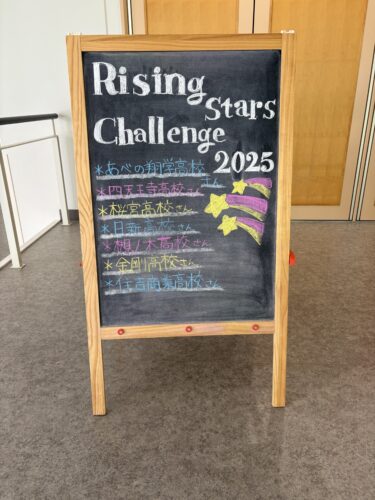 Rising
Stars
Challenge
2025
*あべの翔学高校さん
*四天王寺高校さん
*桜宮高校さん
*日新高校さん
*槻ノ木高校さん
*金剛高校さん
*住吉商業高校さん